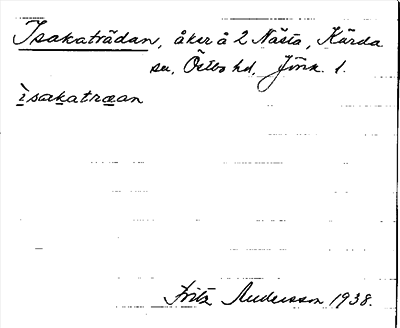 Isakaträdan, åker å 2 Nästa, Kärda
sn, Östbo hd, Jönk. l.
ìsakatraan
Fritz Andersson 1938.